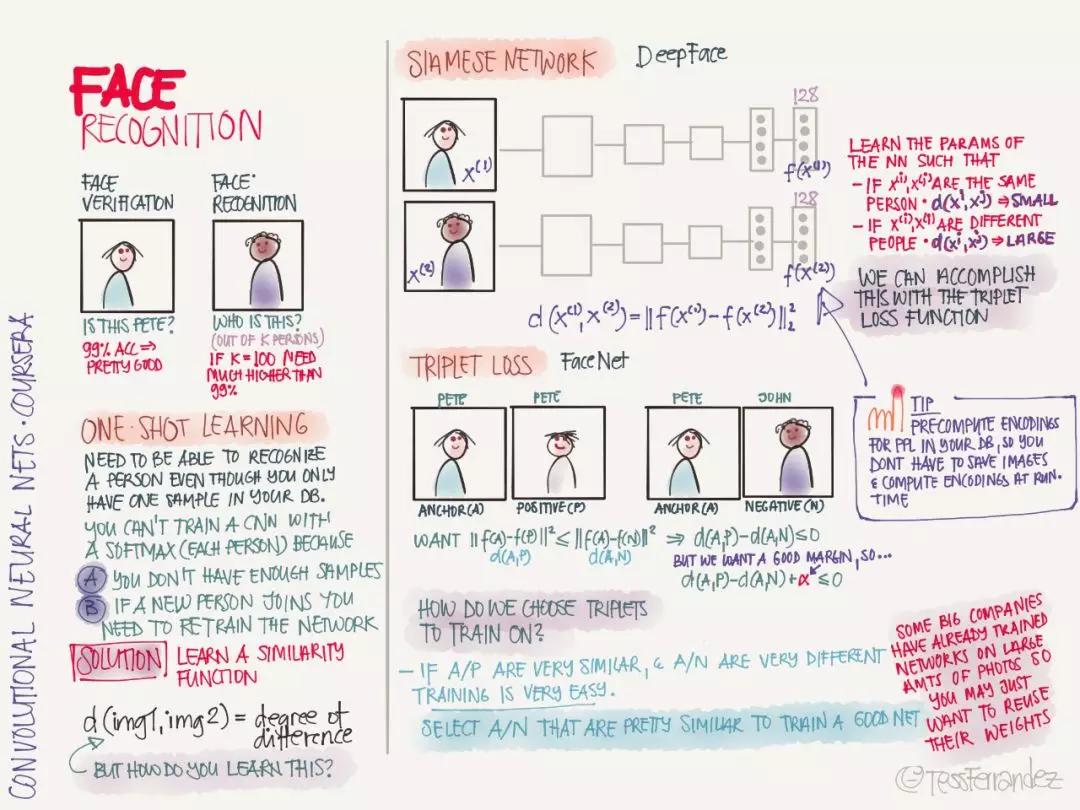 CONVOLUTIONAL NEURAL NETS · COURSERA
FACE
RECOGNITION
FACE
VERIFICATION
IS THIS PETE?
99% ACC ⇒
PRETTY GOOD
FACE·
RECOGNITION
WHO IS THIS?
(OUT OF K PERSONS)
IF K=100 NEED
MUCH HIGHER THAN
99%
ONE·SHOT LEARNING
NEED TO BE ABLE TO RECOGNIZE
A PERSON EVEN THOUGH YOU ONLY
HAVE ONE SAMPLE IN YOUR DB.
YOU CAN'T TRAIN A CNN WITH
A SOFTMAX (EACH PERSON) BECAUSE
A YOU DON'T HAVE ENOUGH SAMPLES
B IF A NEW PERSON JOINS YOU
NEED TO RETRAIN THE NETWORK
SOLUTION LEARN A SIMILARITY
FUNCTION
d(img1, img2) = degree of
difference
BUT HOW DO YOU LEARN THIS?
SIAMESE NETWORK DeepFace
x⁽¹⁾
128
f(x⁽¹⁾)
x⁽²⁾
128
f(x⁽²⁾)
d(x⁽¹⁾, x⁽²⁾) = ||f(x⁽¹⁾) - f(x⁽²⁾)||₂²
LEARN THE PARAMS OF
THE NN SUCH THAT
- IF x⁽ⁱ⁾, x⁽ʲ⁾ ARE THE SAME
PERSON · d(xⁱ, xʲ) ⇒ SMALL
- IF x⁽ⁱ⁾, x⁽ʲ⁾ ARE DIFFERENT
PEOPLE · d(xⁱ, xʲ) ⇒ LARGE
WE CAN ACCOMPLISH
THIS WITH THE TRIPLET
LOSS FUNCTION
TIP
PRECOMPUTE ENCODINGS
FOR PPL IN YOUR DB, SO YOU
DONT HAVE TO SAVE IMAGES
& COMPUTE ENCODINGS AT RUN-
TIME
TRIPLET LOSS FaceNet
PETE PETE PETE JOHN
ANCHOR(A) POSITIVE(P) ANCHOR(A) NEGATIVE(N)
WANT ||f(A)-f(P)||² ≤ ||f(A)-f(N)||² ⇒ d(A,P)-d(A,N) ≤ 0
d(A,P) d(A,N) BUT WE WANT A GOOD MARGIN, SO...
d(A,P)-d(A,N)+α ≤ 0
HOW DO WE CHOOSE TRIPLETS
TO TRAIN ON?
- IF A/P ARE VERY SIMILAR, & A/N ARE VERY DIFFERENT
TRAINING IS VERY EASY.
SELECT A/N THAT ARE PRETTY SIMILAR TO TRAIN A GOOD NET
SOME BIG COMPANIES
HAVE ALREADY TRAINED
NETWORKS ON LARGE
AMTS OF PHOTOS SO
YOU MAY JUST
WANT TO REUSE
THEIR WEIGHTS
@TessFerrandez